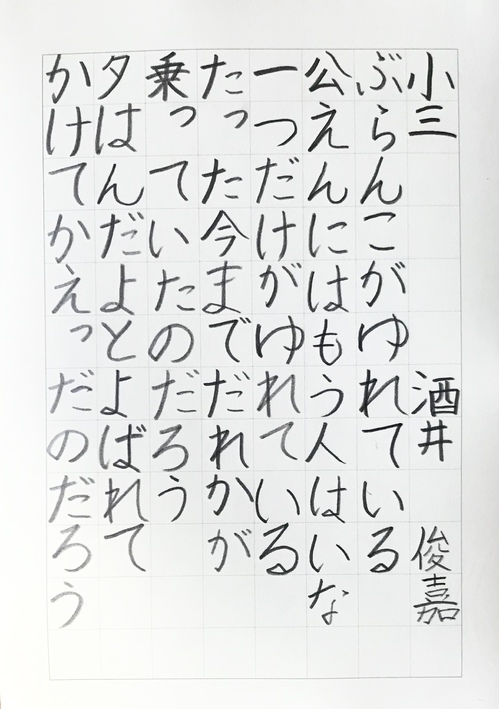 小三 酒井 俊嘉
ぶらんこがゆれている
公えんにはもう人はいな
一つだけがゆれている
たった今までだれかが
乗っていたのだろう
夕はんだよとよばれて
かけてかえっだのだろう